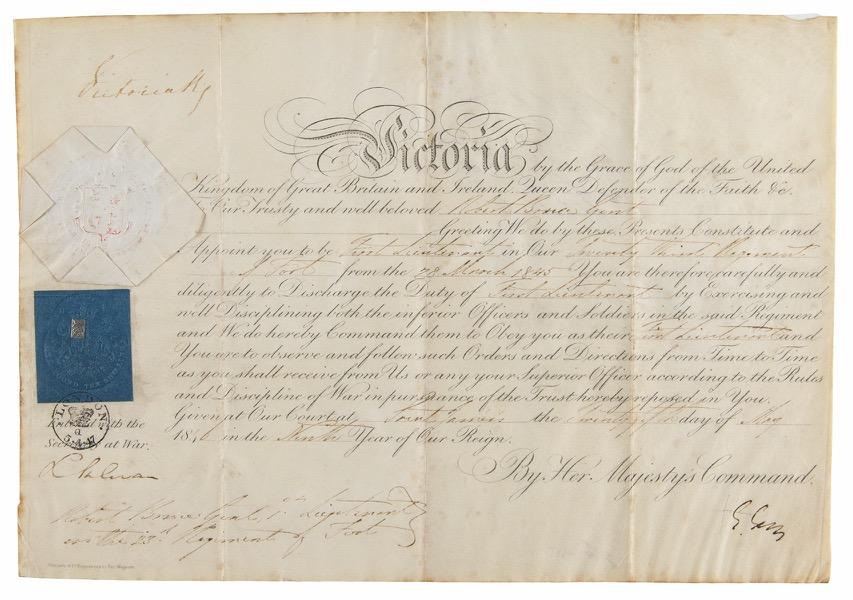 Victoria R
Victoria by the Grace of God of the United
Kingdom of Great Britain and Ireland Queen Defender of the Faith &c.
To Our Trusty and well beloved Robert Bruce Gent
Greeting We do by these Presents Constitute and
Appoint you to be First Lieutenant in Our Twenty third Regiment
of Foot from the 28 March 1845 You are therefore carefully and
diligently to Discharge the Duty of First Lieutenant by Exercising and
well Disciplining both the inferior Officers and Soldiers in the said Regiment
and We do hereby Command them to Obey you as their First Lieutenant and
You are to observe and follow such Orders and Directions from Time to Time
as you shall receive from Us or any your Superior Officer according to the Rules
and Discipline of War in pursuance of the Trust hereby reposed in You
Given at Our Court at Saint James's the day of May
184 in the Ninth Year of Our Reign.
By Her Majesty's Command.
LONDON
Entered with the
Secretary at War.
Robert Bruce Gent, 1st Lieutenant
in the 23d Regiment of Foot